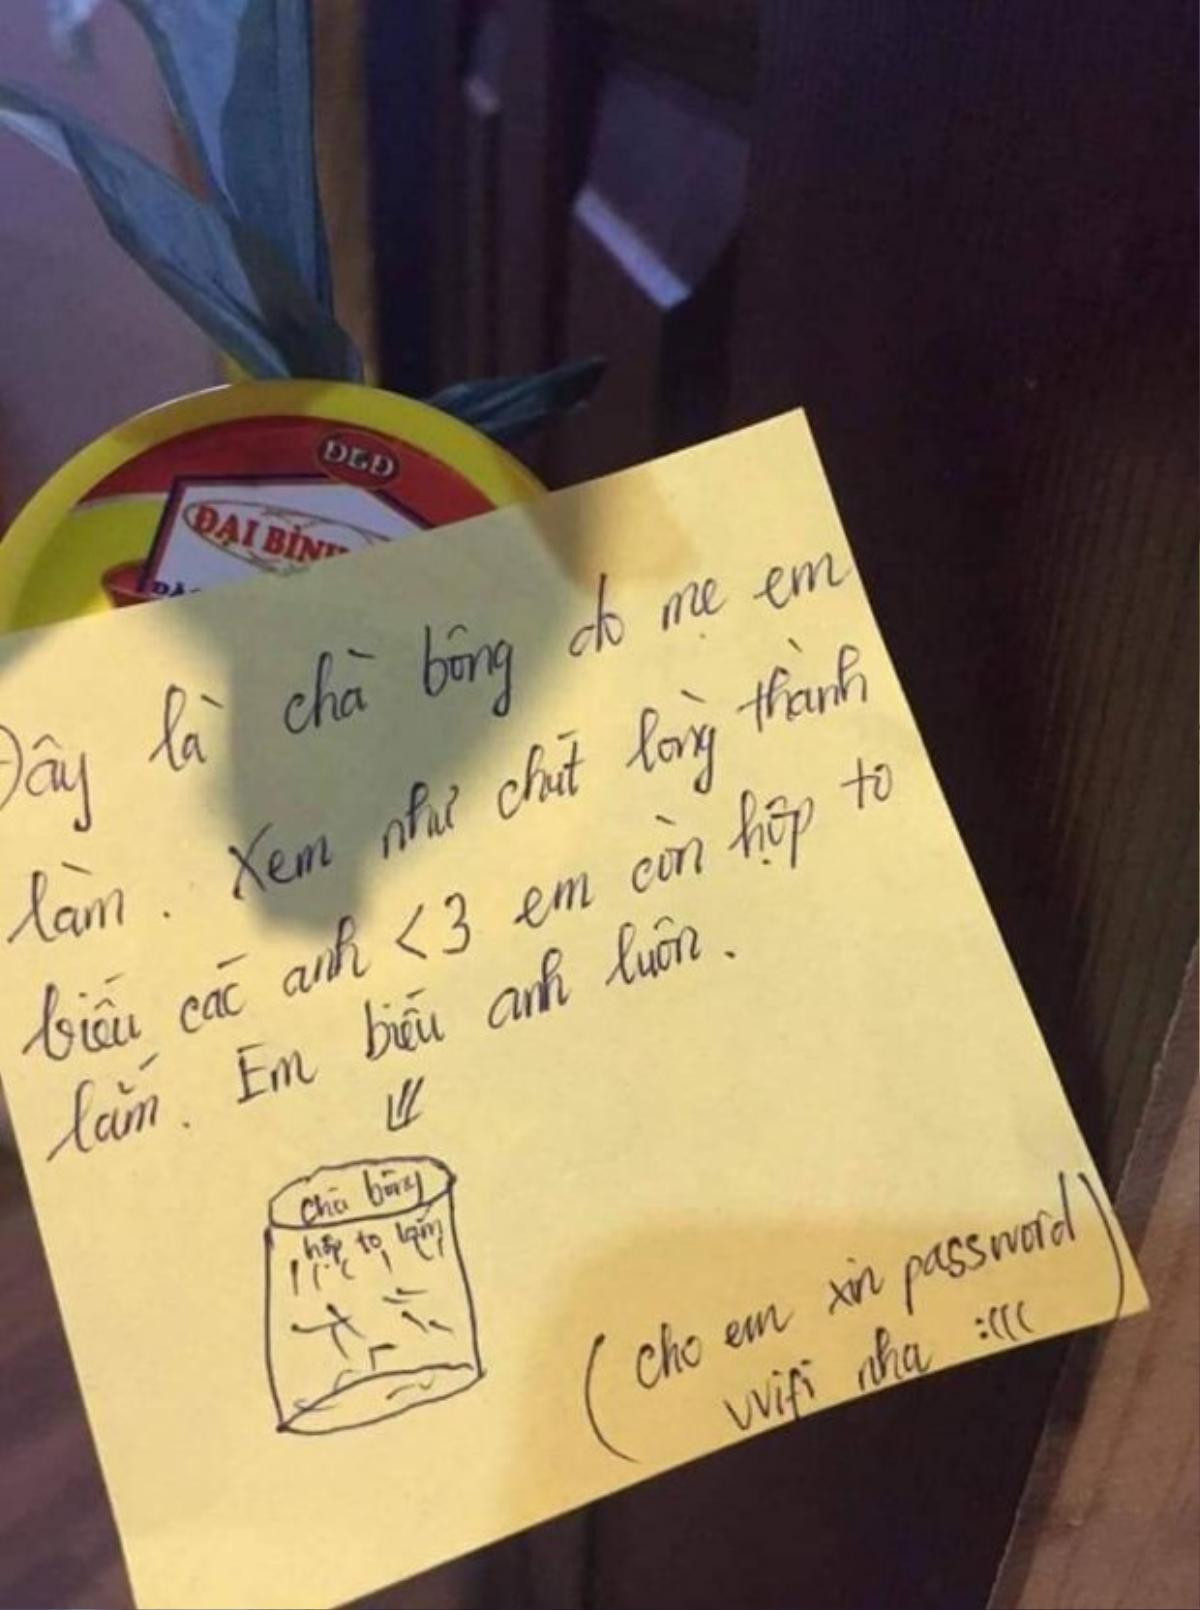 ĐBĐ
ĐẠI BÌNH
Đây là chà bông do mẹ em
làm. Xem như chút lòng thành
biếu các anh <3 em còn hộp to
lắm. Em biếu anh luôn.
chà bông
hộp to lắm
(cho em xin password
wifi nha :(((
)